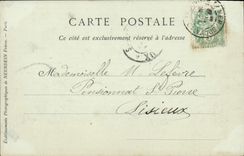 CARTE POSTALE
Ce côté est exclusivement réservé à l'adresse
Mademoiselle M. Lefèvre
Pensionnat St Pierre
Lisieux
Etablissements Photographiques de NEURDEIN Frères. — Paris